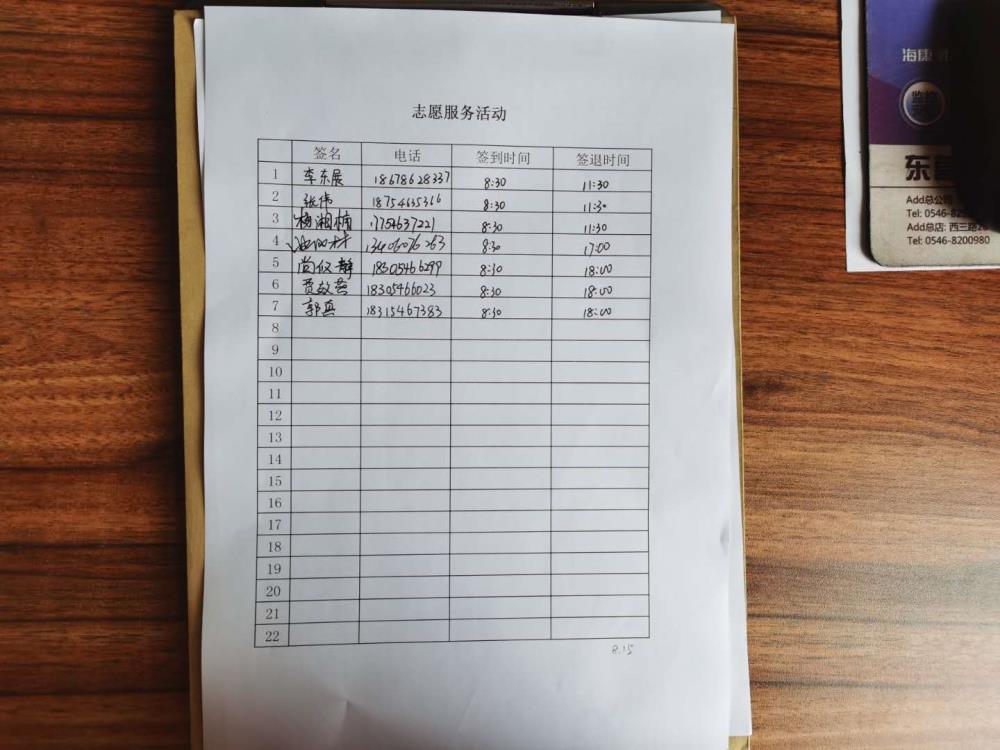 志愿服务活动
签名 电话 签到时间 签退时间
1 李东展 18678628337 8:30 11:30
2 张伟 18754635366 8:30 11:30
3 杨湘楠 17754637221 8:30 11:30
4 13406076263 8:30 17:00
5 尚仪静 18305466299 8:30 18:00
6 贾效燕 18305466023 8:30 18:00
7 郭真 18315467383 8:30 18:00
8
9
10
11
12
13
14
15
16
17
18
19
20
21
22
8.15
海康
监控
东营
Add总公司
Tel: 0546-82
Add总店: 西三路2
Tel: 0546-8200980